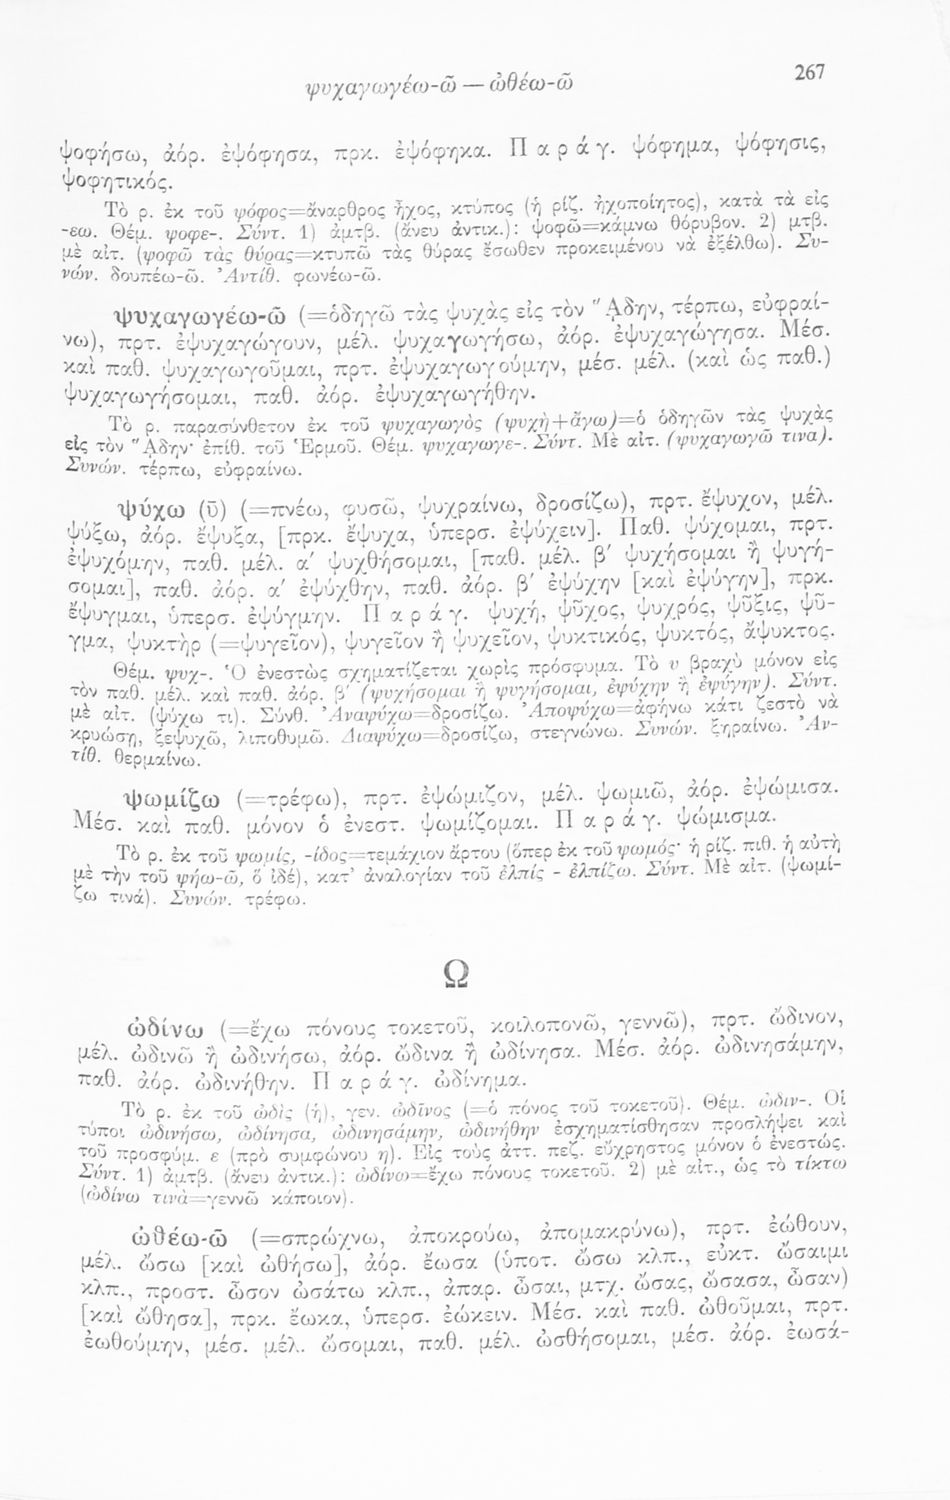 ψυχαγωγέω-ῶ — ὠθέω-ῶ
267
ψοφήσω, ἀόρ. ἐψόφησα, πρκ. ἐψόφηκα. Π α ρ ά γ. ψόφημα, ψόφησις,
ψοφητικός.
Τὸ ρ. ἐκ τοῦ ψόφος=ἄναρθρος ἦχος, κτύπος (ἡ ρίζ. ἠχοποίητος), κατὰ τὰ εἰς
-εω. Θέμ. ψοφε-. Σύντ. 1) ἀμτβ. (ἄνευ ἀντικ.): ψοφῶ=κάμνω θόρυβον. 2) μτβ.
μὲ αἰτ. (ψοφῶ τὰς θύρας=κτυπῶ τὰς θύρας ἔσωθεν προκειμένου νὰ ἐξέλθω). Συ-
νών. δουπέω-ῶ. Ἀντίθ. φωνέω-ῶ.
ψυχαγωγέω-ῶ (=ὁδηγῶ τὰς ψυχὰς εἰς τὸν Ἅδην, τέρπω, εὐφραί-
νω), πρτ. ἐψυχαγώγουν, μέλ. ψυχαγωγήσω, ἀόρ. ἐψυχαγώγησα. Μέσ.
καὶ παθ. ψυχαγωγοῦμαι, πρτ. ἐψυχαγωγούμην, μέσ. μέλ. (καὶ ὡς παθ.)
ψυχαγωγήσομαι, παθ. ἀόρ. ἐψυχαγωγήθην.
Τὸ ρ. παρασύνθετον ἐκ τοῦ ψυχαγωγὸς (ψυχὴ+ἄγω)=ὁ ὁδηγῶν τὰς ψυχὰς
εἰς τὸν Ἅδην· ἐπίθ. τοῦ Ἑρμοῦ. Θέμ. ψυχαγωγε-. Σύντ. Μὲ αἰτ. (ψυχαγωγῶ τινα).
Συνών. τέρπω, εὐφραίνω.
ψύχω (ῡ) (=πνέω, φυσῶ, ψυχραίνω, δροσίζω), πρτ. ἔψυχον, μέλ.
ψύξω, ἀόρ. ἔψυξα, [πρκ. ἔψυχα, ὑπερσ. ἐψύχειν]. Παθ. ψύχομαι, πρτ.
ἐψυχόμην, παθ. μέλ. α′ ψυχθήσομαι, [παθ. μέλ. β′ ψυχήσομαι ἢ ψυγή-
σομαι], παθ. ἀόρ. α′ ἐψύχθην, παθ. ἀόρ. β′ ἐψύχην [καὶ ἐψύγην], πρκ.
ἔψυγμαι, ὑπερσ. ἐψύγμην. Π α ρ ά γ. ψυχή, ψῦχος, ψυχρός, ψῦξις, ψῦ-
γμα, ψυκτὴρ (=ψυγεῖον), ψυγεῖον ἢ ψυχεῖον, ψυκτικός, ψυκτός, ἄψυκτος.
Θέμ. ψυχ-. Ὁ ἐνεστὼς σχηματίζεται χωρὶς πρόσφυμα. Τὸ υ βραχὺ μόνον εἰς
τὸν παθ. μέλ. καὶ παθ. ἀόρ. β′ (ψυχήσομαι ἢ ψυγήσομαι, ἐψύχην ἢ ἐψύγην). Σύντ.
μὲ αἰτ. (ψύχω τι). Σύνθ. Ἀναψύχω=δροσίζω. Ἀποψύχω=ἀφήνω κάτι ζεστὸ νὰ
κρυώσῃ, ξεψυχῶ, λιποθυμῶ. Διαψύχω=δροσίζω, στεγνώνω. Συνών. ξηραίνω. Ἀν-
τίθ. θερμαίνω.
ψωμίζω (=τρέφω), πρτ. ἐψώμιζον, μέλ. ψωμιῶ, ἀόρ. ἐψώμισα.
Μέσ. καὶ παθ. μόνον ὁ ἐνεστ. ψωμίζομαι. Π α ρ ά γ. ψώμισμα.
Τὸ ρ. ἐκ τοῦ ψωμίς, -ίδος=τεμάχιον ἄρτου (ὅπερ ἐκ τοῦ ψωμός· ἡ ρίζ. πιθ. ἡ αὐτὴ
μὲ τὴν τοῦ ψήω-ῶ, ὃ ἰδέ), κατ' ἀναλογίαν τοῦ ἐλπίς - ἐλπίζω. Σύντ. Μὲ αἰτ. (ψωμί-
ζω τινά). Συνών. τρέφω.
Ω
ὠδίνω (=ἔχω πόνους τοκετοῦ, κοιλοπονῶ, γεννῶ), πρτ. ὤδινον,
μέλ. ὠδινῶ ἢ ὠδινήσω, ἀόρ. ὤδινα ἢ ὠδίνησα. Μέσ. ἀόρ. ὠδινησάμην,
παθ. ἀόρ. ὠδινήθην. Π α ρ ά γ. ὠδίνημα.
Τὸ ρ. ἐκ τοῦ ὠδὶς (ἡ), γεν. ὠδῖνος (=ὁ πόνος τοῦ τοκετοῦ). Θέμ. ὠδιν-. Οἱ
τύποι ὠδινήσω, ὠδίνησα, ὠδινησάμην, ὠδινήθην ἐσχηματίσθησαν προσλήψει καὶ
τοῦ προσφύμ. ε (πρὸ συμφώνου η). Εἰς τοὺς ἀττ. πεζ. εὔχρηστος μόνον ὁ ἐνεστώς.
Σύντ. 1) ἀμτβ. (ἄνευ ἀντικ.): ὠδίνω=ἔχω πόνους τοκετοῦ. 2) μὲ αἰτ., ὡς τὸ τίκτω
(ὠδίνω τινὰ=γεννῶ κάποιον).
ὠθέω-ῶ (=σπρώχνω, ἀποκρούω, ἀπομακρύνω), πρτ. ἐώθουν,
μέλ. ὤσω [καὶ ὠθήσω], ἀόρ. ἔωσα (ὑποτ. ὤσω κλπ., εὐκτ. ὤσαιμι
κλπ., προστ. ὦσον ὠσάτω κλπ., ἀπαρ. ὦσαι, μτχ. ὤσας, ὤσασα, ὦσαν)
[καὶ ὤθησα], πρκ. ἔωκα, ὑπερσ. ἐώκειν. Μέσ. καὶ παθ. ὠθοῦμαι, πρτ.
ἐωθούμην, μέσ. μέλ. ὤσομαι, παθ. μέλ. ὠσθήσομαι, μέσ. ἀόρ. ἐωσά-